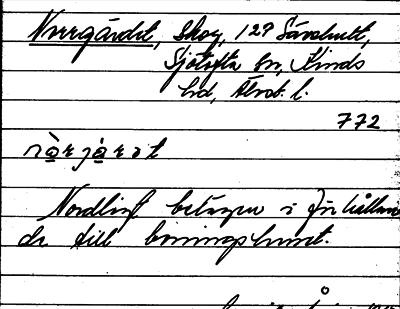 Norrgärdet, skog, 129 Sävshult,
Sjötofta sn, Kinds
hd, Älvsb. l.
772
Nordligt belägen i förhållan
de till boningshuset.